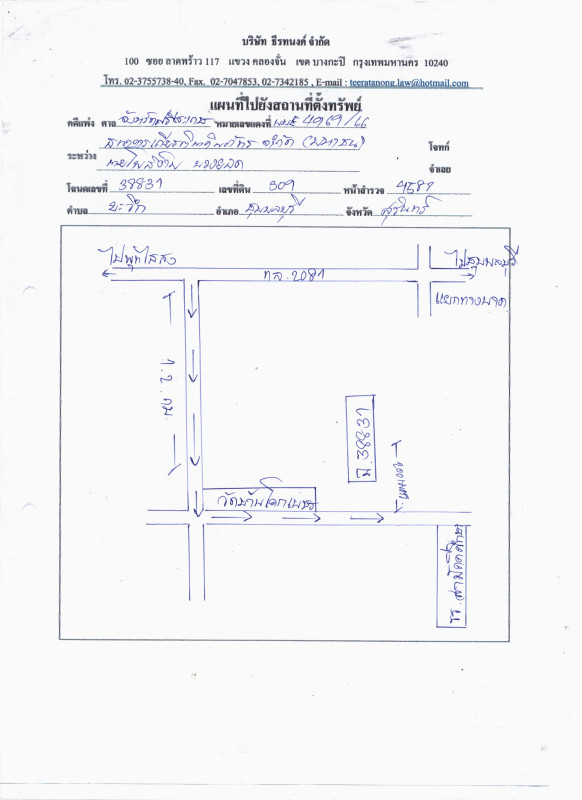 บริษัท ธีรทนงค์ จำกัด
100 ซอย ลาดพร้าว 117 แขวง คลองจั่น เขต บางกะปิ กรุงเทพมหานคร 10240
โทร. 02-3755738-40, Fax. 02-7047853, 02-7342185 , E-mail : teeratanong.law@hotmail.com
แผนที่ไปยังสถานที่ตั้งทรัพย์
คดีแพ่ง ศาล จังหวัด หมายเลขแดงที่ 4969/66
ธนาคารเกียรตินาคินภัทร จำกัด (มหาชน) โจทก์
ระหว่าง จำเลย
โฉนดเลขที่ 38831 เลขที่ดิน 309 หน้าสำรวจ 4581
ตำบล อำเภอ ชุมพลบุรี จังหวัด สุรินทร์
ไปพุทไธสง
ทล.2081
ไปชุมพลบุรี
แยกทางพาด
1.2 กม.
ฉ.38831
วัดบ้านโคกเพชร
รร.สามัคคีศึกษา